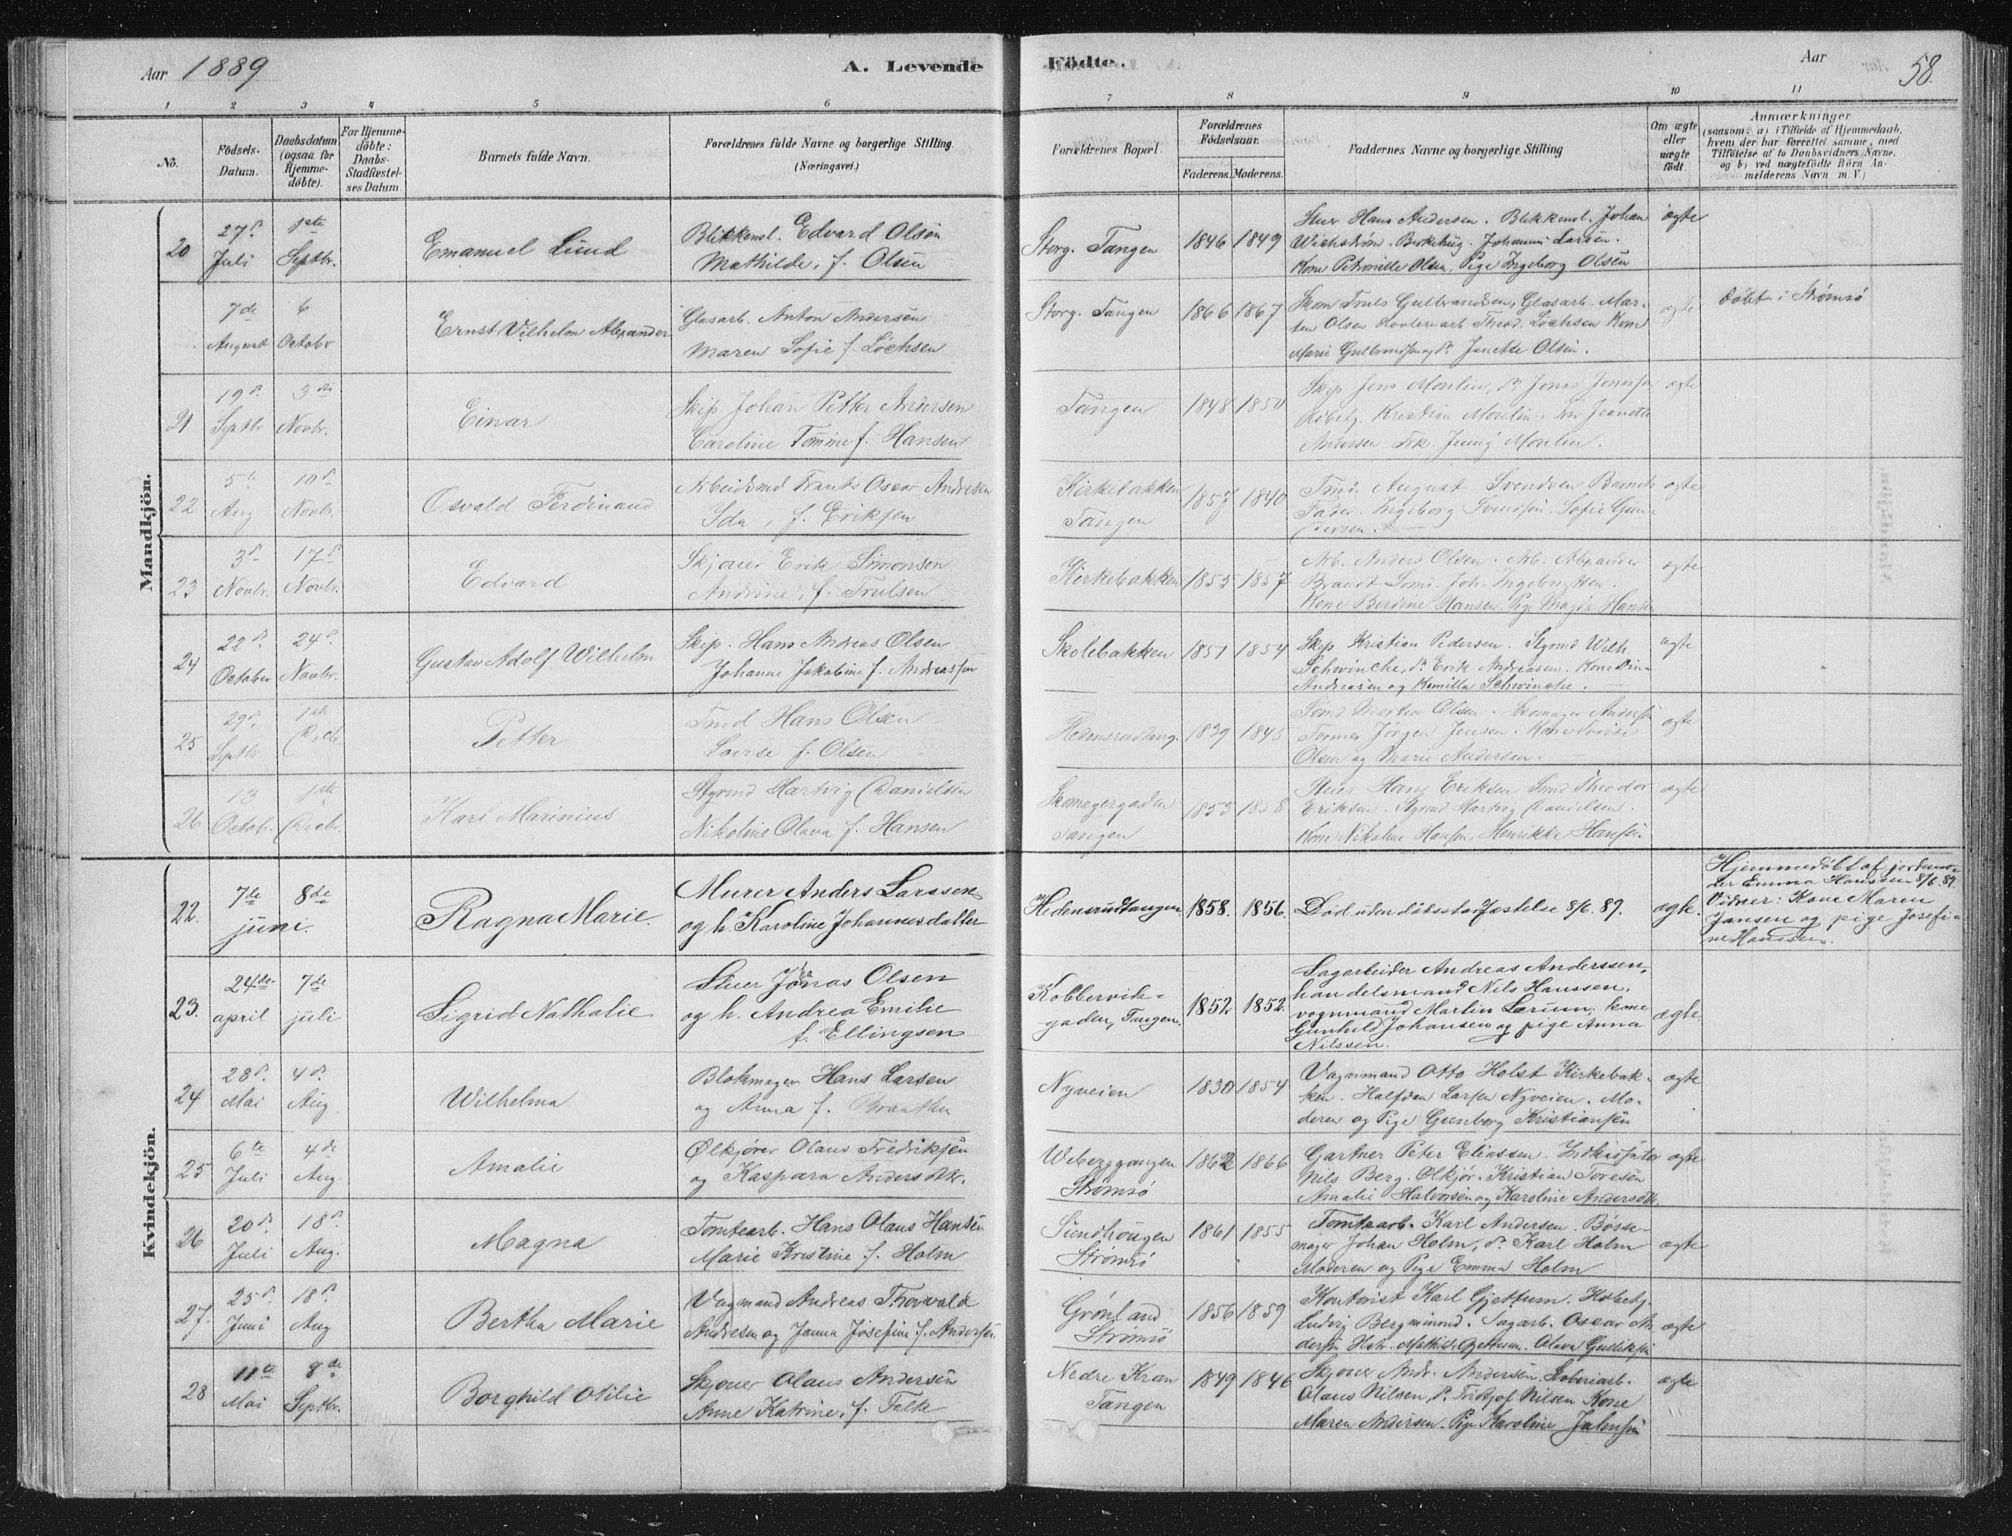 Aar 1889
A. Levende
Födte.
Aar
58.
1 2 3 4 5 6 7 8 9 10 11
No.
Födsels-
Datum.
Daabsdatum
(ogsaa for
Hjemme-
döbte).
For Hjemme-
döbte:
Daabs-
Stadfæstel-
ses Datum
Barnets fulde Navn.
Forældrenes fulde Navne og borgerlige Stilling
(Næringsvei.)
Forældrenes Bopæl.
Forældrenes
Födselsaar.
Faderens. Moderens.
Faddernes Navne og borgerlige Stilling
Om ægte
eller
uægte
födt.
Anmærkninger
(saasom: a) i Tilfælde af Hjemmedaab,
hvem der har forrettet samme, med
Tilföielse af to Daabsvidners Navne,
og b) ved uægtefödte Börn An-
melderens Navn m. V.)
Mandkjön.
20
27d Juli
1ste Septbr.
Emanuel Lund
Blikkensl. Edvard Olsen
Mathilde, f. Olsen
Storg. Tangen
1846 1849
Stuer Hans Andersen. Blikkensl. Johan
Wichstrøm. Johannes Larsen.
Kone Petronille Olsen, Pige Ingeborg Olsen
ægte
7de August
6 Octobr
Ernst Vilhelm Alexander
Glasarb. Anton Andersen
Maren Sofie f. Løchsen
Storg. Tangen
1866 1867
Skom Truls Gulbrandsen, Glasarb. Mar-
ten Olsen Theod. Løchsen Kone
Marie Gulbrandsen og do Janette Olsen.
ægte
døbt i Strømsø
21
19d Septbr
3die Novbr.
Einar
Skip Johan Petter Andersen
Caroline Tomine f. Hansen
Tangen
1848 1850
Skip Jens Moulin, do Jonas
Kristian Moulin, Jeanette
Andersen Frk. Jenny Moulin.
ægte
22
5te Aug
10d Novbr.
Osvald Ferdinand
Arbeidsmd Frants Oscar Andresen
Ida, f. Eriksen
Kirkebakken
Tangen
1857 1840
Tmd. August Svendsen Barnets
Fader. Ingeborg Svendsen. Sofie Gun-
ægte
23
3d Novbr.
17d Novbr.
Edvard
Skjouer Erik Simonsen
Andrine, f. Trulsen
Kirkebakken
1855 1857
Arb. Anders Olsen. Arb. Alexander
Brandt Smd. Joh. Ingebrigtsen.
Kone Berdine Hansen. Pige Magda Hansen
ægte
24
22d October
24d Novbr.
Gustav Adolf Wilhelm
Skip. Hans Andreas Olsen
Johanne Jakobine f. Andreassen
Skolebakken
1851 1854
Skip Kristian Pedersen. Stymd Wilh.
Schwincke, do Erik Andreasen. Kone
Andreasen og Kamilla Schwincke.
ægte
25
29d Septbr
1ste Decbr.
Petter
Tmd Hans Olsen
Lovise f. Olsen
Hedensrudtang.
1839 1845
Smd Morten Olsen. Skomager Andersen
Former Jørgen Jensen. Kone Lovise
Olsen og Marie Andersen.
ægte
26
13 Octob.
1ste Decbr.
Karl Marinius
Stymd Hartvig Danielsen
Nikoline Olava f. Hansen
Skomagergaden
Tangen
1853 1858
Stuer Hans Eriksen Smd Theodor
Eriksen. Stymd Hartvig Danielsen.
Kone Nikoline Hansen. Henrikke Hansen.
ægte
Kvindekjön.
22.
7de 8de
juni.
Ragna Marie.
Murer Anders Larssen
og h. Karoline Johannesdatter
Hedensrudtangen
1858. 1856.
Død uden døbsstadfæstelse 8/6. 89.
ægte.
Hjemmedøbt af jordmo-
der Emma Hanssen 8/6. 89.
Vidner: Kone Maren
Jansen og pige Josefi-
ne Hanssen.
23.
24de april
7de juli
Sigrid Nathalie
Stuer Jonas Olsen
og h. Andrea Emilie
f. Ellingsen
Kobbervik-
gaden, Tangen.
1852 1852.
Sagarbeider Andreas Anderssen,
handelsmand Nils Hanssen.
vognmand Martin Larum, kone
Gunhild Johansen og pige Anna
Nilssen.
ægte.
24
28d Mai
4d Aug.
Wilhelma
Blokmager Hans Larsen
og Anna f. Braathen
Nyveien
1830 1854
Vognmand Otto Holst Kirkebak-
ken. Halfdan Larsen Nyveien. Mo-
deren og Pige Gunborg Kristiansen
ægte
25
6te Juli
4de Aug.
Amalie
Ølkjører Olaus Fredriksen
og Kaspara Andersdtr.
Webergganger
Strømsø
1862 1866
Gartner Peter Eliassen.
Nils Berg. Ølkjør. Kristian Toresen
Amalie Halvorsen og Karoline Andersdtr.
ægte
26
20d Juli
18d Aug.
Magna
Tomtearb. Hans Olaus Hansen
Marie Kristine f. Holm
Sundhougen
Strømsø
1861 1855
Tomtearb. Karl Andersen. Bøsse-
mager Johan Holm, do Karl Holm
Moderen og Pige Emma Holm
ægte
27.
25d Juni
18d Aug
Bertha Marie
Vognmand Andreas Thorvald
Andresen og Janna Josefine f. Andersen
Grønland
Strømsø
1856 1859
Kontorist Karl Gjettum.
Ludvig Bergmixrud. Sagarb. Oscar An-
dersen Mathilde Gjettum. Olava Gulliksen
ægte
28
11te Mai
8de Septbr.
Borghild Otilie
Skjouer Olaus Andersen
Anne Katrine, f. Falk
Nedre Kran
Tangen
1849 1846
Skjouer Andr. Andersen.
Olaus Nilsen, do Fritjof Nilsen Kone
Maren Andersen. Pige Karoline Jahnsen
ægte